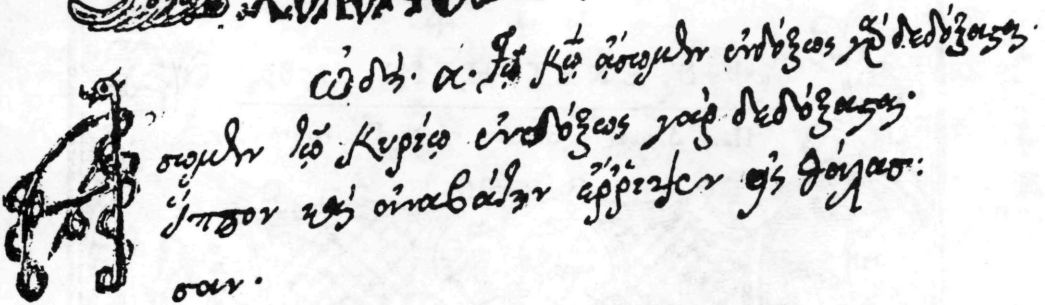 ᾠδὴ· α· τῷ κῷ ᾄσωμεν ἐνδόξως γὰρ δεδόξασται·
Ἄσωμεν τῷ Κυρίῳ ἐνδόξως γὰρ δεδόξασται·
ἵππον καὶ ἀναβάτην ἔρριψεν εἰς θάλασ:
σαν·